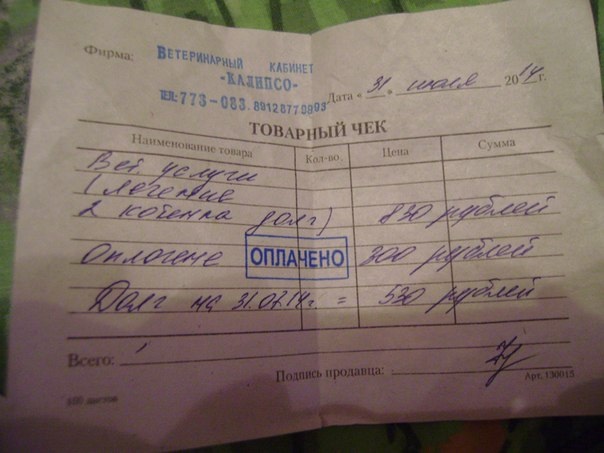 Фирма: ВЕТЕРИНАРНЫЙ КАБИНЕТ
-КАЛИПСО-
ТЕЛ: 773-083. 89128770993
Дата « 31 » июля 2014 г.
ТОВАРНЫЙ ЧЕК
Наименование товара Кол-во. Цена Сумма
Вет услуги
(лечение
2 котенка долг) 830 рублей
Оплочене ОПЛАЧЕНО 300 рублей
Долг на 31.07.14г. = 530 рублей
Всего:
Подпись продавца:
Арт. 130015
100 листов